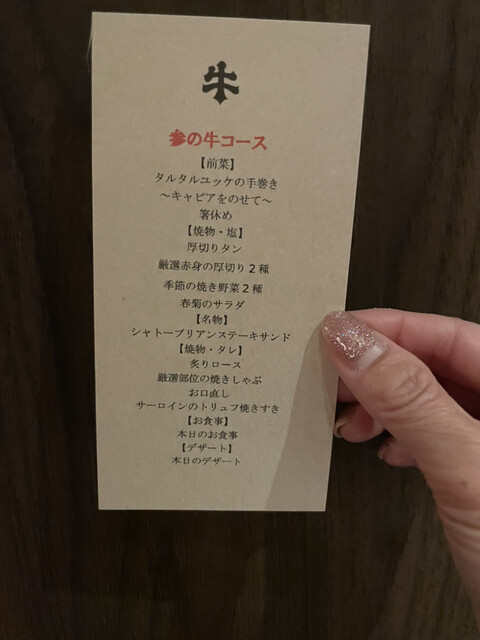 牛
参の牛コース
【前菜】
タルタルユッケの手巻き
～キャビアをのせて～
箸休め
【焼物・塩】
厚切りタン
厳選赤身の厚切り２種
季節の焼き野菜２種
春菊のサラダ
【名物】
シャトーブリアンステーキサンド
【焼物・タレ】
炙りロース
厳選部位の焼きしゃぶ
お口直し
サーロインのトリュフ焼きすき
【お食事】
本日のお食事
【デザート】
本日のデザート